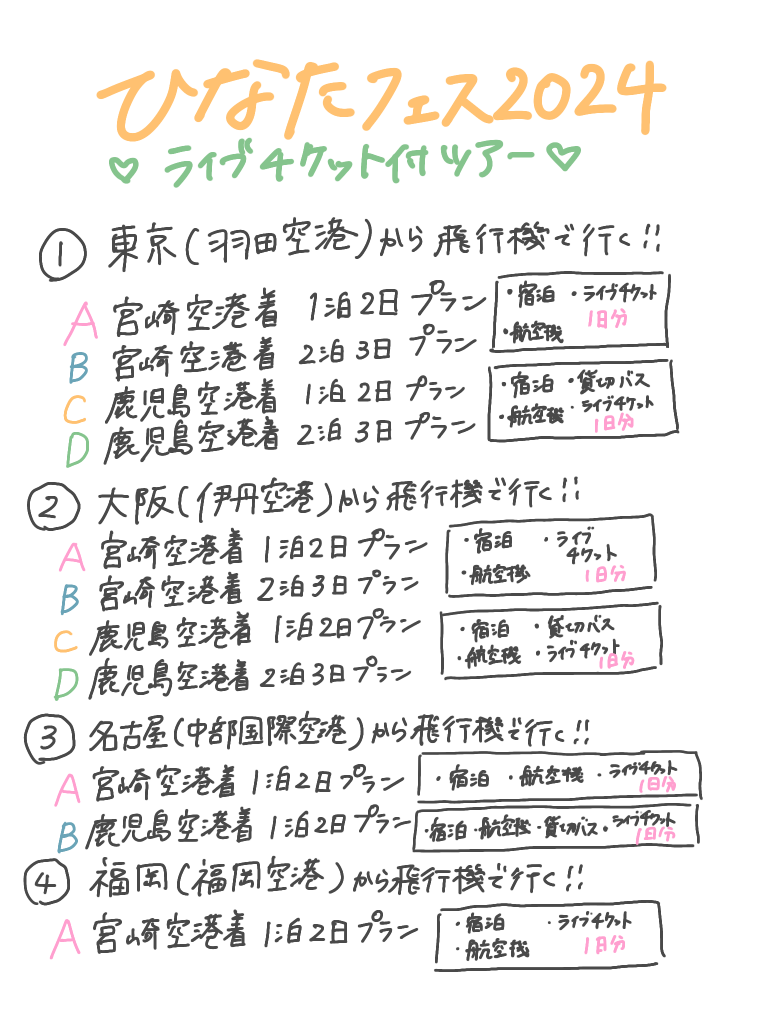 ひなたフェス2024
♡ ライブチケット付ツアー ♡
① 東京(羽田空港)から飛行機で行く!!
A 宮崎空港着 1泊2日プラン
B 宮崎空港着 2泊3日プラン
・宿泊 ・ライブチケット
・航空機 1日分
C 鹿児島空港着 1泊2日プラン
D 鹿児島空港着 2泊3日プラン
・宿泊 ・貸切バス
・航空機 ・ライブチケット
1日分
② 大阪(伊丹空港)から飛行機で行く!!
A 宮崎空港着 1泊2日プラン
B 宮崎空港着 2泊3日プラン
・宿泊 ・ライブ
チケット
・航空機 1日分
C 鹿児島空港着 1泊2日プラン
D 鹿児島空港着 2泊3日プラン
・宿泊 ・貸切バス
・航空機 ・ライブチケット
1日分
③ 名古屋(中部国際空港)から飛行機で行く!!
A 宮崎空港着 1泊2日プラン
・宿泊 ・航空機 ・ライブチケット
1日分
B 鹿児島空港着 1泊2日プラン
・宿泊 ・航空機 ・貸切バス ・ライブチケット
1日分
④ 福岡(福岡空港)から飛行機で行く!!
A 宮崎空港着 1泊2日プラン
・宿泊 ・ライブチケット
・航空機 1日分